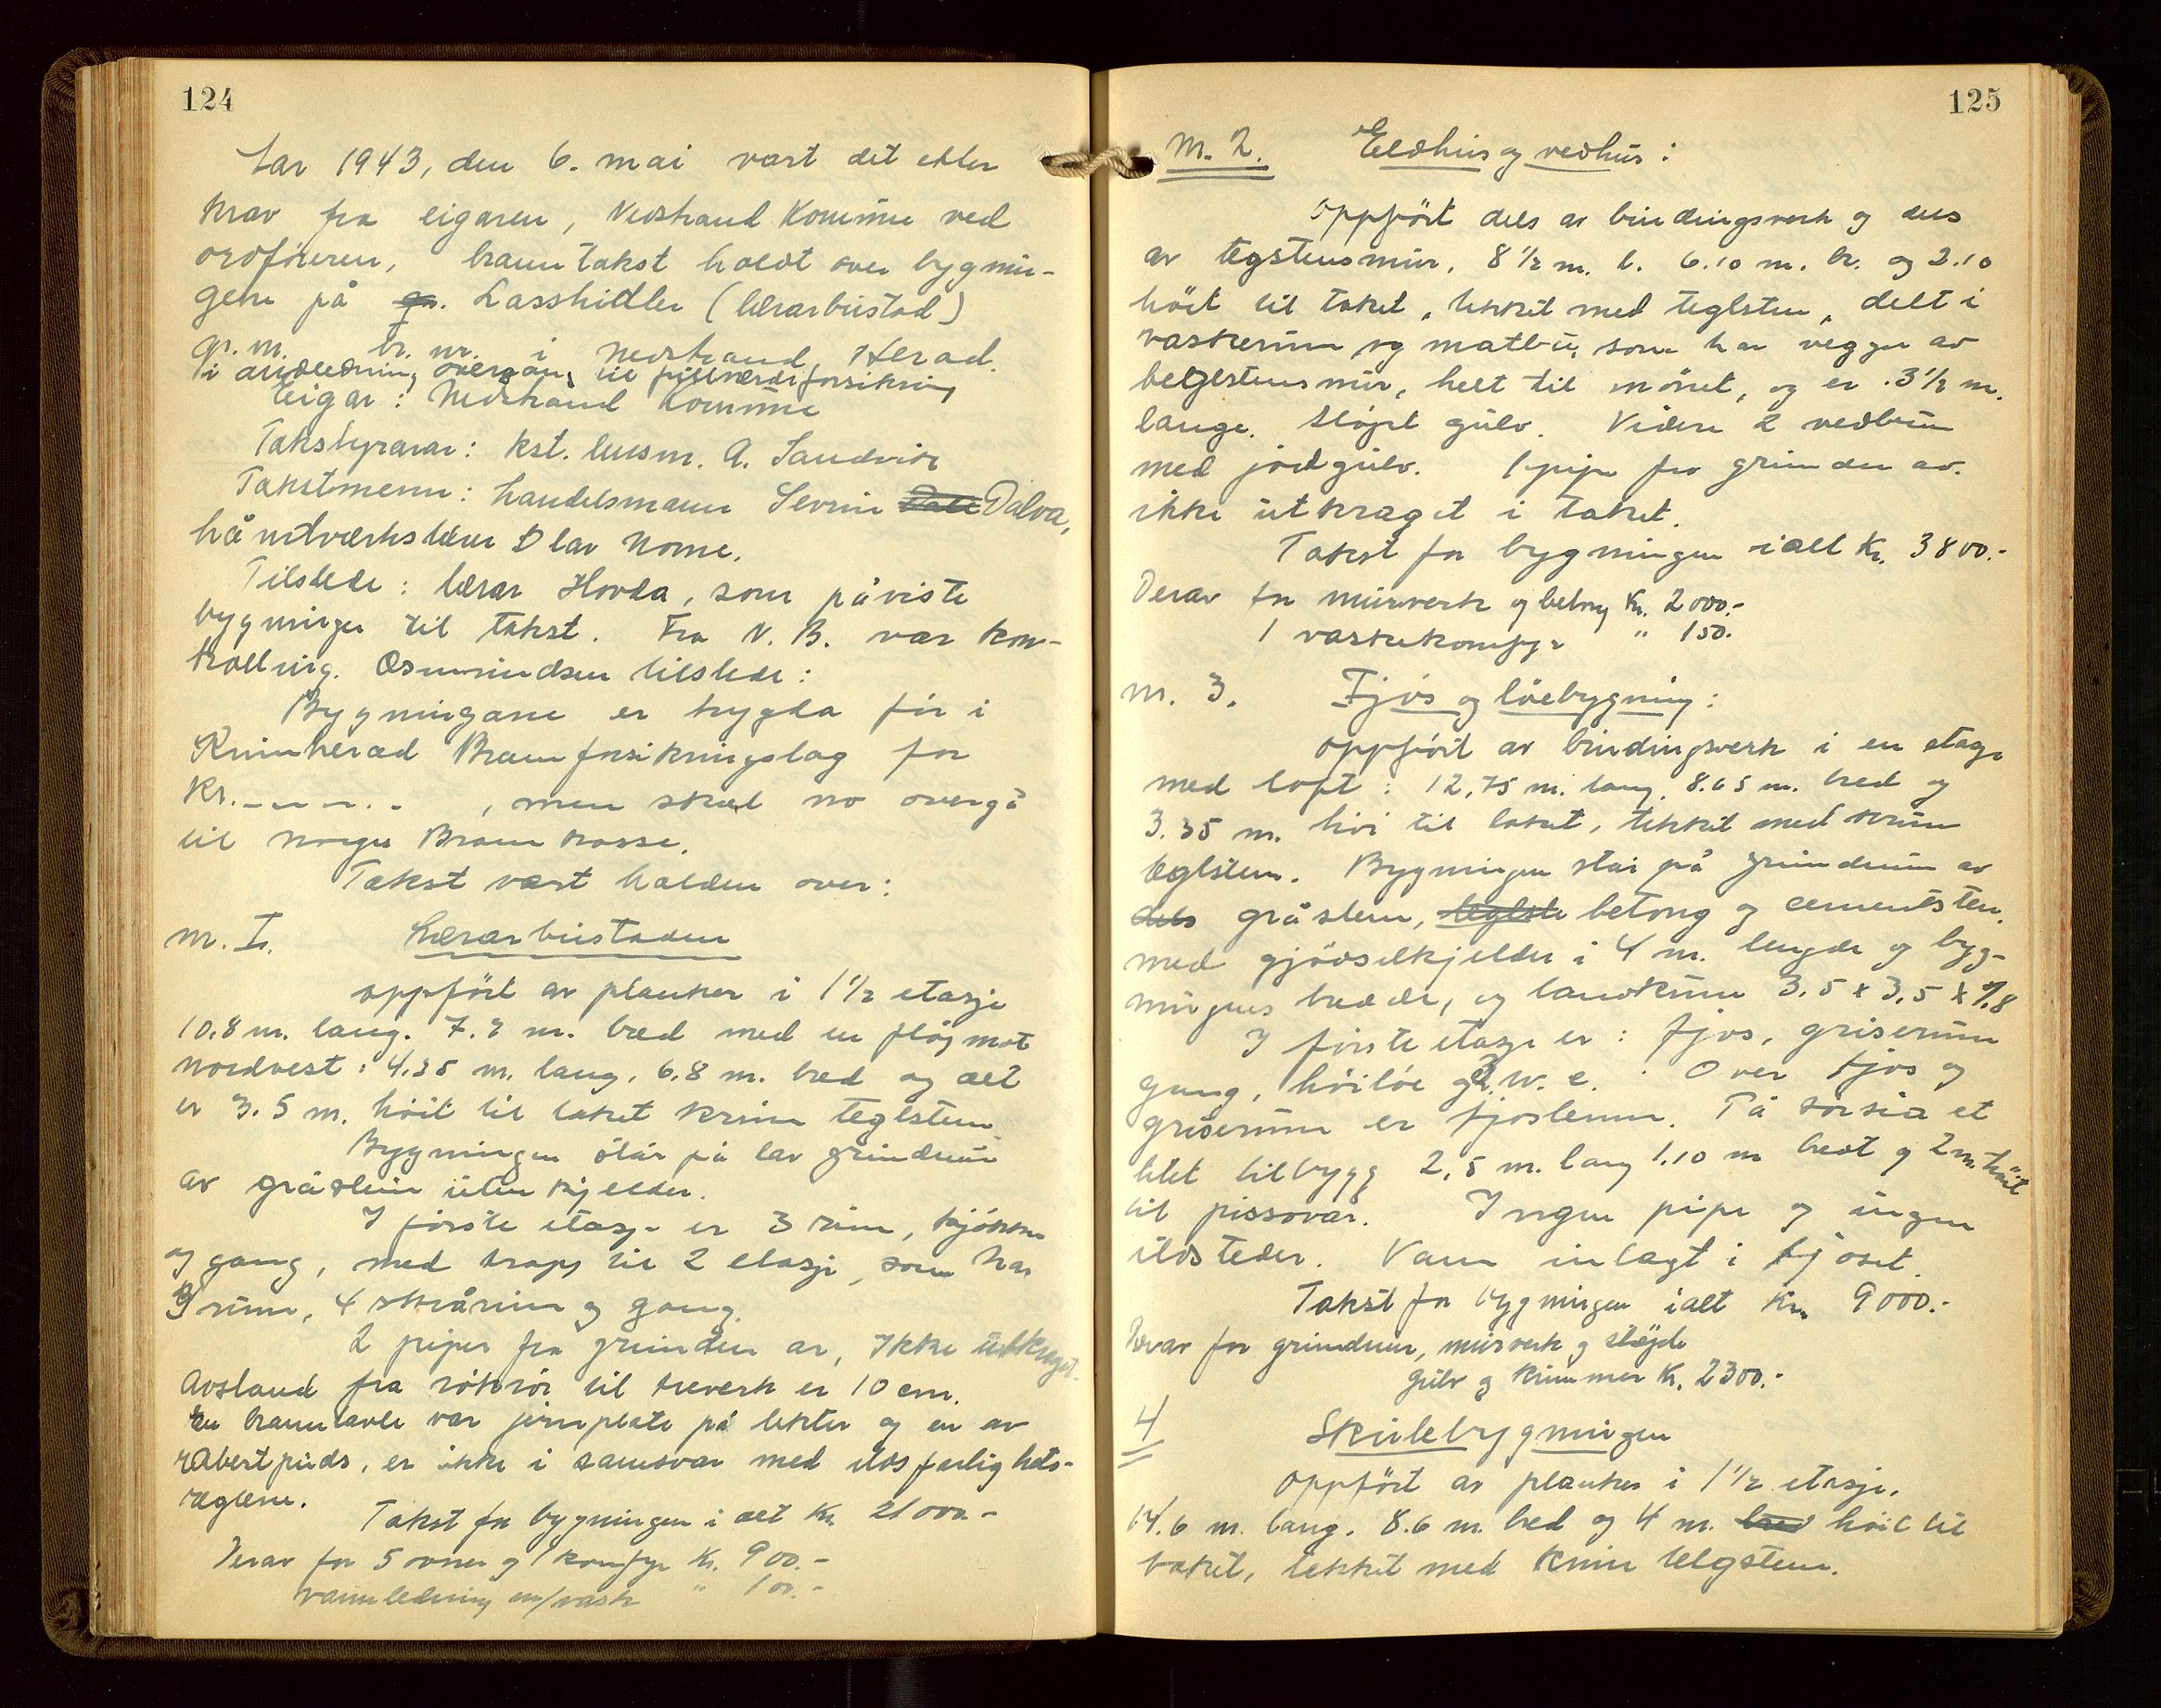 124
År 1943, den 6. mai vart det etter
krav fra eigaren, Nedstrand Komune ved
ordføreren, branntakst holdt over bygnin-
gene på gn. Lasshidler (lærarbustad)
gr. nr. br. nr. i Nedstrand Herad.
i anledning overgang til fullverdiforsikring
Eigar: Nedstrand Komune
Takstyrarar: kst. lensm. A. Sandvik
Takstmenn: handelsmann Sevrin Dale Dalva,
håndtverkslærer Olav Nome.
Tilstede: lærar Hovda, som påviste
bygninger til takst. Fra N. B. var kon-
troll ing. Osmundsen tilstede:
Bygningane er trygda før i
Kvinherad Brannforsikringslag for
Kr. - - - - - , men skal no overgå
til Norges Brannkasse.
Takst vart halden over:
m. I. Lærarbustaden
oppført av planker i 1 1/2 etasje
10.8 m. lang. 7.2 m. bred med en fløj mot
nordvest: 4.35 m. lang, 6.8 m. bred og alt
er 3.5 m. høit til taket krum teglstein
Bygningen står på lav grundmur
av gråstein uten kjelder.
I første etasje er 3 rum, kjøkken
og gang, med trapp til 2 etasje, som har
3 rum, 4 skrårum og gang.
2 piper fra grunden av, Ikke utkraget.
Avstand fra rökrör til treverk er 10 cm.
En branntavle var jernplate på lekter og en av
rabetspuds, er ikke i samsvar med ildsfarlighets-
reglene.
Takst for bygningen i alt Kr. 21000.-
Derav for 5 ovner og 1 komfyr Kr. 900.-
vannledning m/vask " 100.-
125
m. 2. Eldhus og vedhus:
Oppført dels av bindingsverk og dels
av teglstensmur. 8 1/2 m. l. 6.10 m. br. og 2.10
höit til taket, tekket med teglsten, delt i
vaskerum og matbu, som har vegger av
teglstensmur, helt til mönet, og er 3 1/2 m.
lange. Stöpt gulv. Videre 2 vedbum
med jordgulv. 1 pipe fra grunden av.
ikke utkraget i taket.
Takst for bygningen ialt Kr. 3800.-
Derav for murverk og betong Kr. 2000.-
1 vaskekomfyr " 150.-
m. 3. Fjös og löebygning:
Oppfört av bindingsverk i en etasje
med loft: 12,75 m. lang, 8.65 m. bred og
3.35 m. höi til taket, tekket med krum
teglsten. Bygningen står på grundmur av
dels gråsten, teglste betong og cementsten,
med gjödselkjelder i 4 m. lengde og byg-
ningens bredde, og landkum 3.5 x 3.5 x 1.8
I förste etasje er: fjös, griserum
gang, höilöe og W. C. Over fjös og
griserum er fjoslemm. På sörsida et
litet tilbygg 2,5 m. lang 1.10 m bredt og 2 m. höit
til pissovar. Ingen pipe og ingen
ildsteder. Vann inlagt i fjöset.
Takst for bygningen ialt Kr. 9000.-
Derav for grundmur, murverk og stöpte
gulv og kummer Kr. 2300.-
4 Skulebygningen
Oppfört av planker i 1 1/2 etasje.
14.6 m. lang. 8.6 m. bred og 4 m. bred höit til
taket, tekket med krum telgsten.